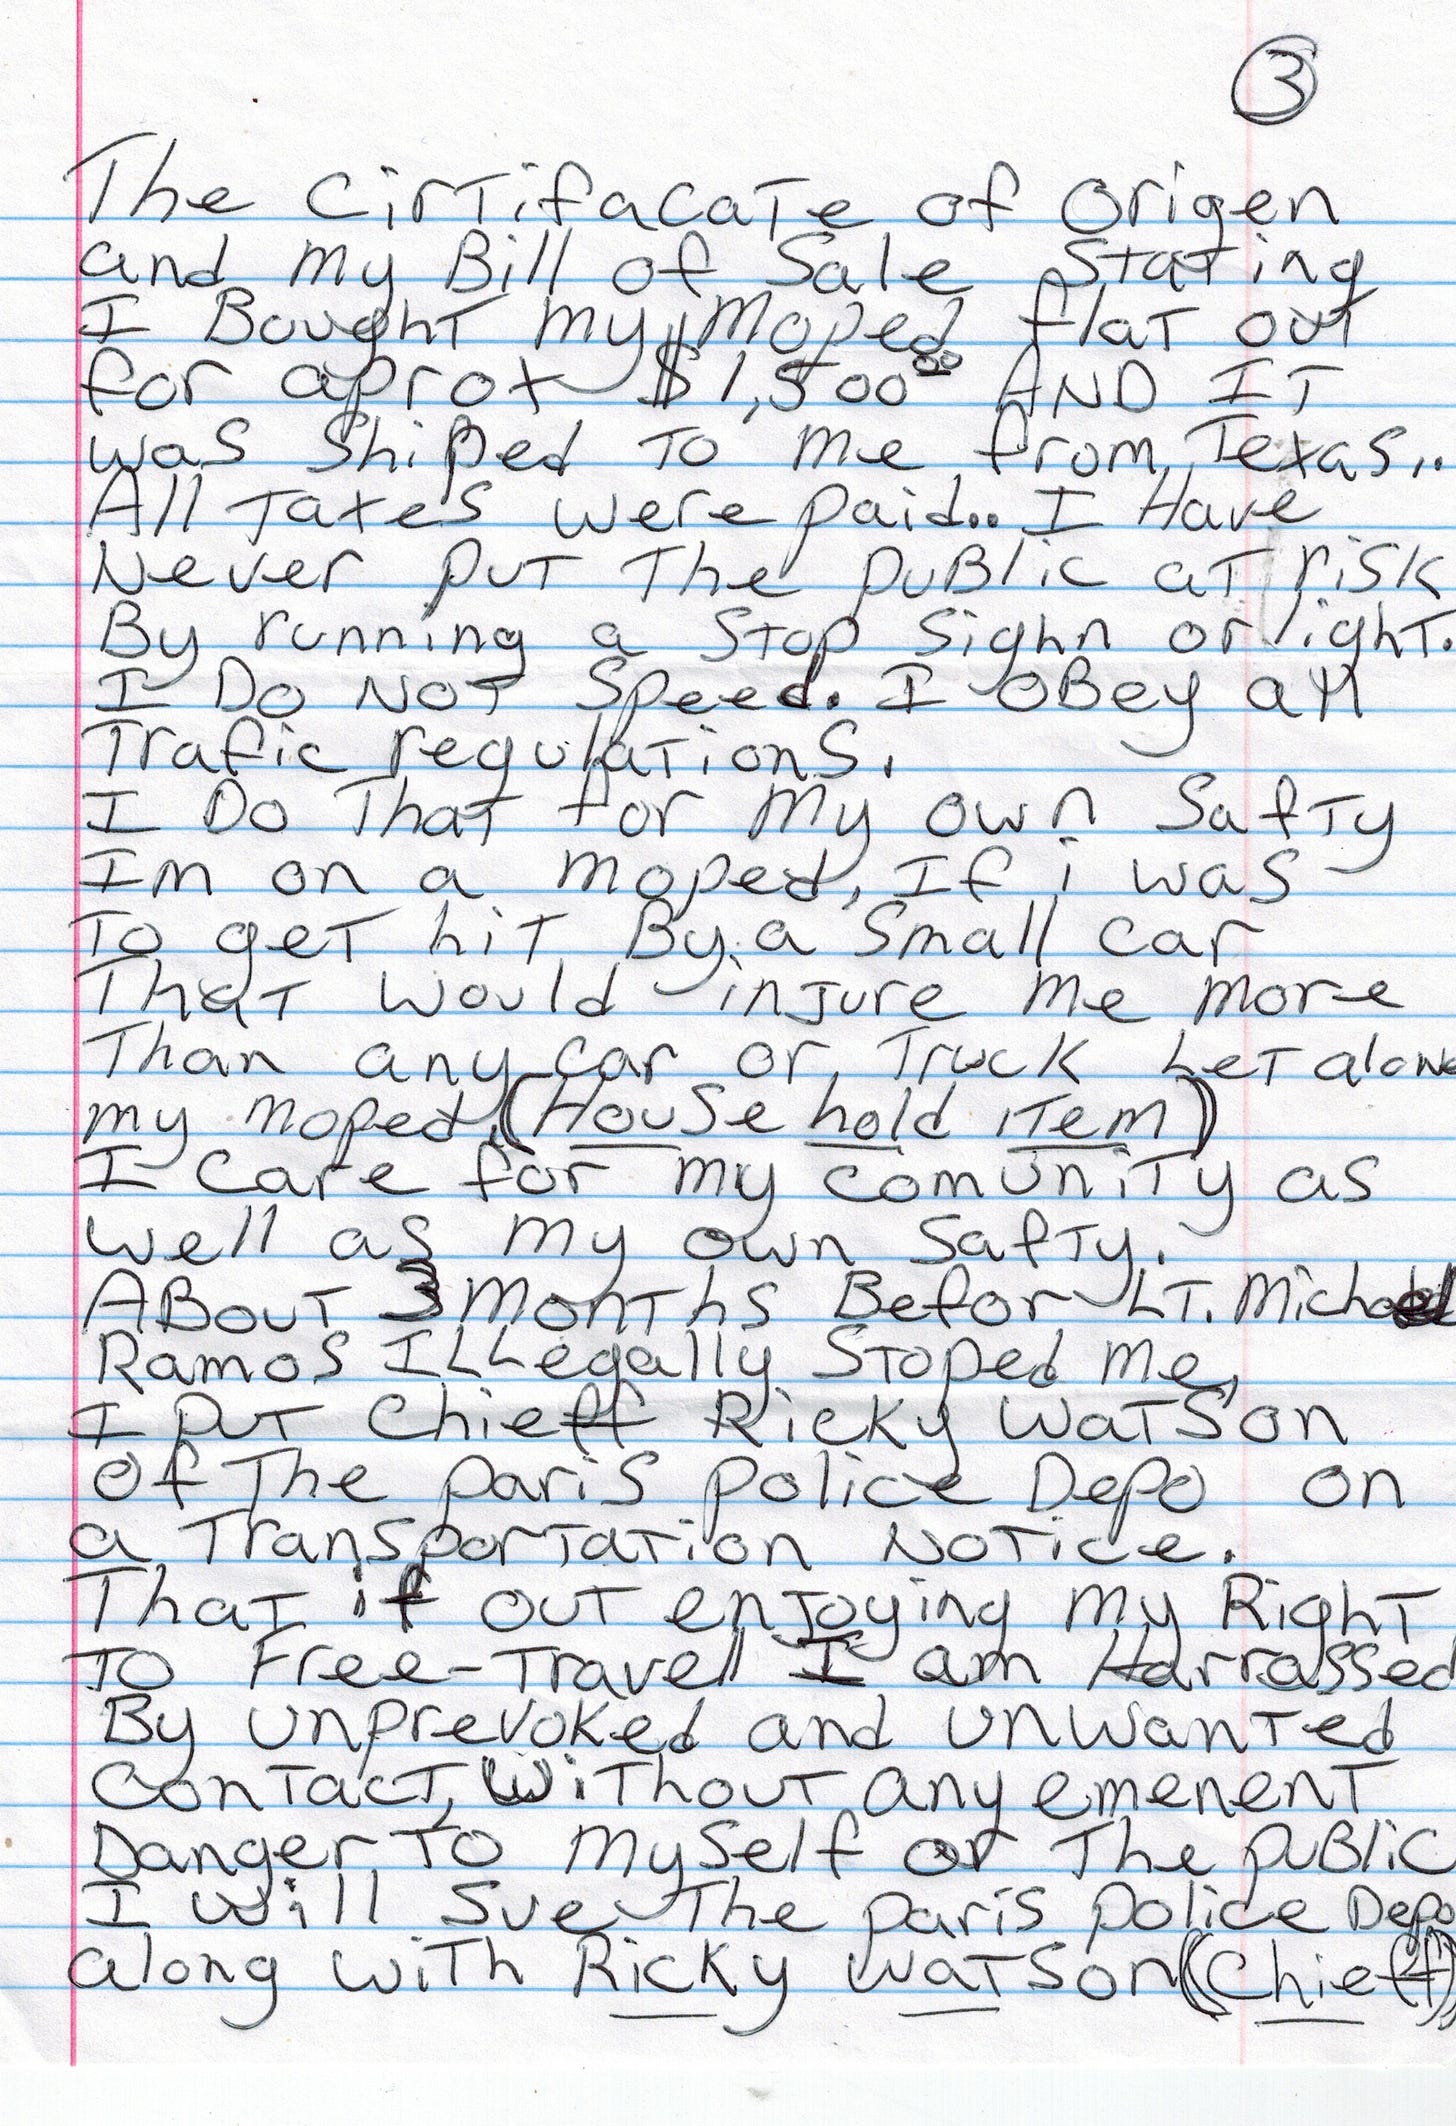 3
The CirTifacaTe of Origen
and my Bill of Sale STaTing
I BoughT my Moped flaT ouT
for aprox $1,500.00 AND IT
was ShiPed To me from Texas..
All Taxes were paid.. I Have
Never puT The puBlic aT risk
By running a STop Sighn or lighT.
I Do NoT Speed. I oBey all
Trafic regulaTionS.
I Do ThaT for my own SafTy
Im on a moped, If i was
To geT hiT By a Small car
ThaT would inJure me more
Than any car or Truck LeT alone
my moped, (House hold iTem)
I Care for my comuniTy as
well as my own SafTy.
ABouT 3 MonThs Befor LT. Michael
Ramos ILLegally SToped me,
I puT Chieff Ricky WaTSon
Of The pariS police Depo on
a TransporTaTion NoTice.
ThaT if ouT enJoying my RighT
To Free-Travel I am Harrassed
By unprevoked and unwanTed
ConTacT, WiThouT any emenenT
Danger To mySelf or The puBlic
I will Sue The pariS police Depo
along wiTh Ricky WaTSon (Chieff)